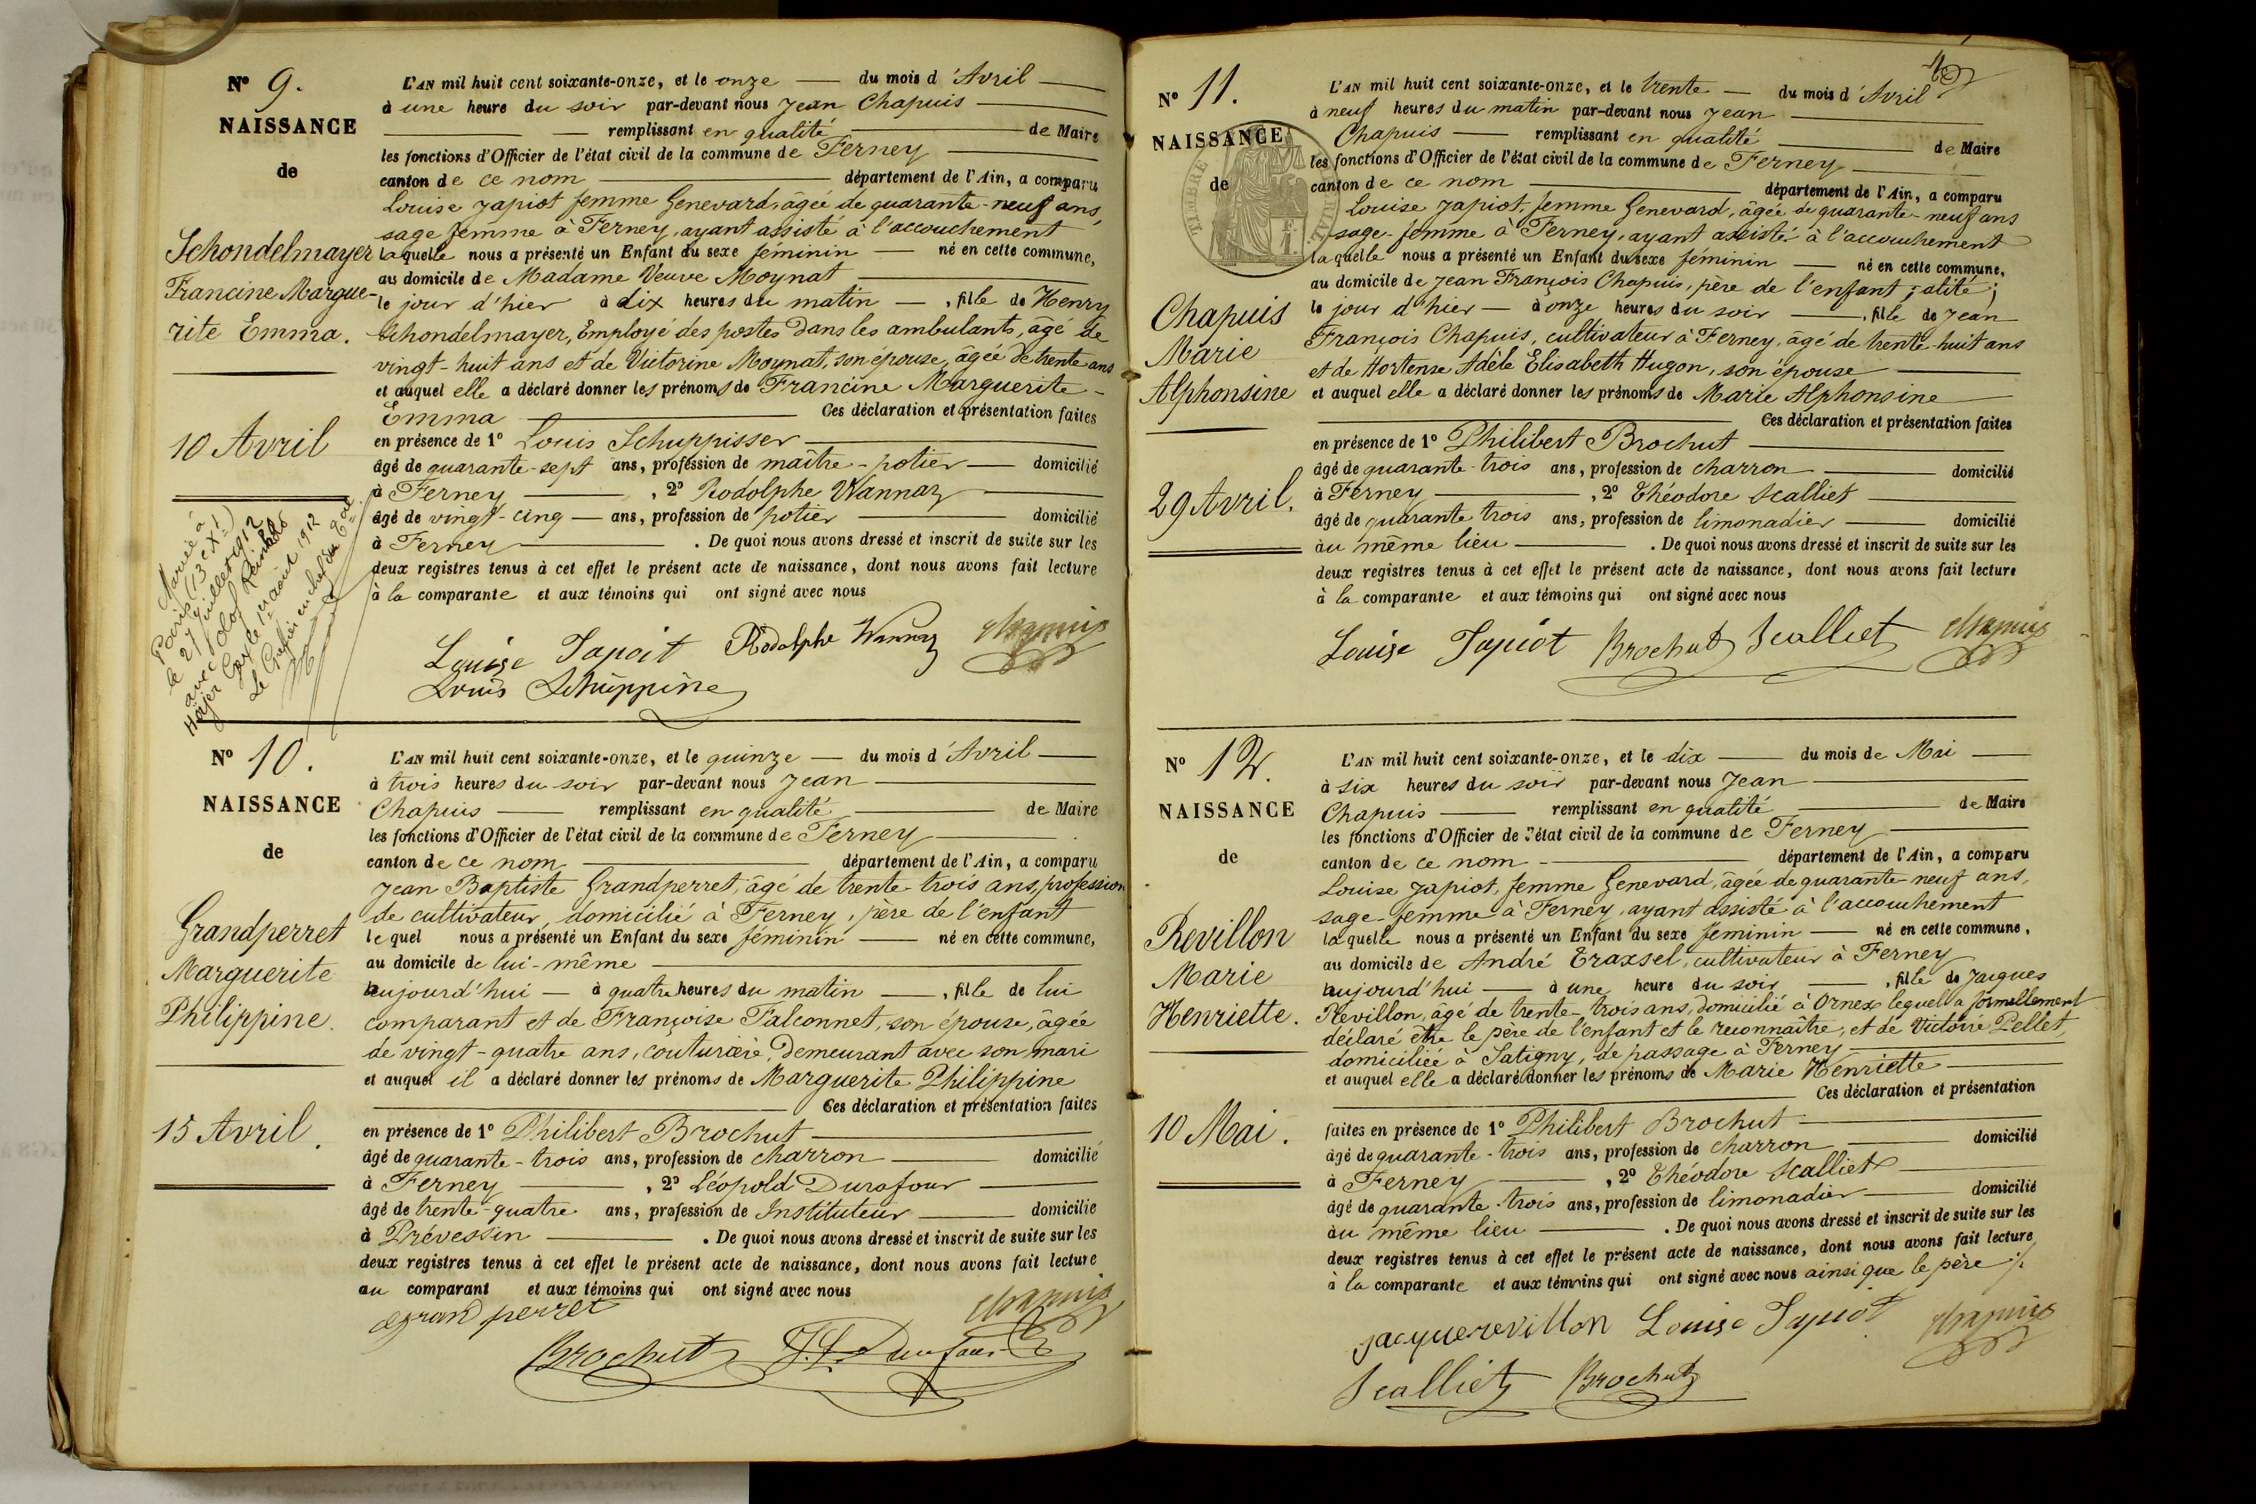 N° 9.
NAISSANCE
de
Schondelmayer
Francine Margue-
rite Emma.
10 Avril
Mariée à
Paris (13e X
le 27 juillet 1912
avec Olof Reinhold
Höijer Gex le 1er août 1912
Le Greffier en chef du
L'AN mil huit cent soixante-onze, et le onze du mois d'Avril
à une heure du soir par-devant nous Jean Chapuis
remplissant en qualité de Maire
les fonctions d'Officier de l'état civil de la commune de Ferney
canton de ce nom département de l'Ain, a comparu
Louise Japiot femme Genevard, âgée de quarante-neuf ans,
sage femme à Ferney, ayant assisté à l'accouchement
laquelle nous a présenté un Enfant du sexe féminin né en cette commune,
au domicile de Madame Veuve Moynat
le jour d'hier à dix heures du matin, fille de Henry
Schondelmayer, Employé des postes dans les ambulants, âgé de
vingt-huit ans et de Victorine Moynat, son épouse, âgée de trente ans
et auquel elle a déclaré donner les prénoms de Francine Marguerite-
Emma Ces déclaration et présentation faites
en présence de 1° Louis Schuppisser
âgé de quarante-sept ans, profession de maître-potier domicilié
à Ferney, 2° Rodolphe Wannaz
âgé de vingt-cinq ans, profession de potier domicilié
à Ferney. De quoi nous avons dressé et inscrit de suite sur les
deux registres tenus à cet effet le présent acte de naissance, dont nous avons fait lecture
à la comparante et aux témoins qui ont signé avec nous
Louise Japoit Rodolphe Wannaz Chapuis
Louis Schüppine
N° 10.
NAISSANCE
de
Grandperret
Marguerite
Philippine.
15 Avril.
L'AN mil huit cent soixante-onze, et le quinze du mois d'Avril
à trois heures du soir par-devant nous Jean
Chapuis remplissant en qualité de Maire
les fonctions d'Officier de l'état civil de la commune de Ferney
canton de ce nom département de l'Ain, a comparu
Jean Baptiste Grandperret, âgé de trente-trois ans, profession
de cultivateur, domicilié à Ferney, père de l'enfant
lequel nous a présenté un Enfant du sexe féminin né en cette commune,
au domicile de lui-même
aujourd'hui à quatre heures du matin, fille de lui
comparant et de Françoise Falconnet, son épouse, âgée
de vingt-quatre ans, couturière, Demeurant avec son mari
et auquel il a déclaré donner les prénoms de Marguerite Philippine
Ces déclaration et présentation faites
en présence de 1° Philibert Brochut
âgé de quarante-trois ans, profession de charron domicilié
à Ferney, 2° Léopold Durafour
âgé de trente-quatre ans, profession de Instituteur domicilié
à Prévessin. De quoi nous avons dressé et inscrit de suite sur les
deux registres tenus à cet effet le présent acte de naissance, dont nous avons fait lecture
au comparant et aux témoins qui ont signé avec nous
grand perret Chapuis
Brochut J. L. Durafour
N° 11.
NAISSANCE
de
Chapuis
Marie
Alphonsine
29 Avril.
TIMBRE
L'AN mil huit cent soixante-onze, et le trente du mois d'Avril
à neuf heures du matin par-devant nous Jean
Chapuis remplissant en qualité de Maire
les fonctions d'Officier de l'état civil de la commune de Ferney
canton de ce nom département de l'Ain, a comparu
Louise Japiot, femme Genevard, âgée de quarante-neuf ans
sage-femme à Ferney, ayant assisté à l'accouchement
laquelle nous a présenté un Enfant du sexe féminin né en cette commune,
au domicile de Jean François Chapuis, père de l'enfant; alité;
le jour d'hier à onze heures du soir, fille de Jean
François Chapuis, cultivateur à Ferney, âgé de trente-huit ans
et de Hortense Adèle Elisabeth Hugon, son épouse
et auquel elle a déclaré donner les prénoms de Marie Alphonsine
Ces déclaration et présentation faites
en présence de 1° Philibert Brochut
âgé de quarante-trois ans, profession de charron domicilié
à Ferney, 2° Théodore Scalliet
âgé de quarante trois ans, profession de limonadier domicilié
au même lieu. De quoi nous avons dressé et inscrit de suite sur les
deux registres tenus à cet effet le présent acte de naissance, dont nous avons fait lecture
à la comparante et aux témoins qui ont signé avec nous
Louise Japiot Brochut Scalliet Chapuis
N° 12.
NAISSANCE
de
Revillon
Marie
Henriette.
10 Mai.
L'AN mil huit cent soixante-onze, et le dix du mois de Mai
à six heures du soir par-devant nous Jean
Chapuis remplissant en qualité de Maire
les fonctions d'Officier de l'état civil de la commune de Ferney
canton de ce nom département de l'Ain, a comparu
Louise Japiot, femme Genevard, âgée de quarante-neuf ans,
sage-femme à Ferney, ayant assisté à l'accouchement
laquelle nous a présenté un Enfant du sexe féminin né en cette commune,
au domicile de André Traxsel, cultivateur à Ferney
aujourd'hui à une heure du soir, fille de Jacques
Revillon, âgé de trente-trois ans, domicilié à Ornex lequel a formellement
déclaré être le père de l'enfant et le reconnaître, et de Victoire Pellet,
domiciliée à Satigny, de passage à Ferney
et auquel elle a déclaré donner les prénoms de Marie Henriette
Ces déclaration et présentation
faites en présence de 1° Philibert Brochut
âgé de quarante-trois ans, profession de charron domicilié
à Ferney, 2° Théodore Scalliet
âgé de quarante-trois ans, profession de limonadier domicilié
au même lieu. De quoi nous avons dressé et inscrit de suite sur les
deux registres tenus à cet effet le présent acte de naissance, dont nous avons fait lecture
à la comparante et aux témoins qui ont signé avec nous ainsi que le père
jacque revillon Louise Japiot Chapuis
Scalliet Brochut